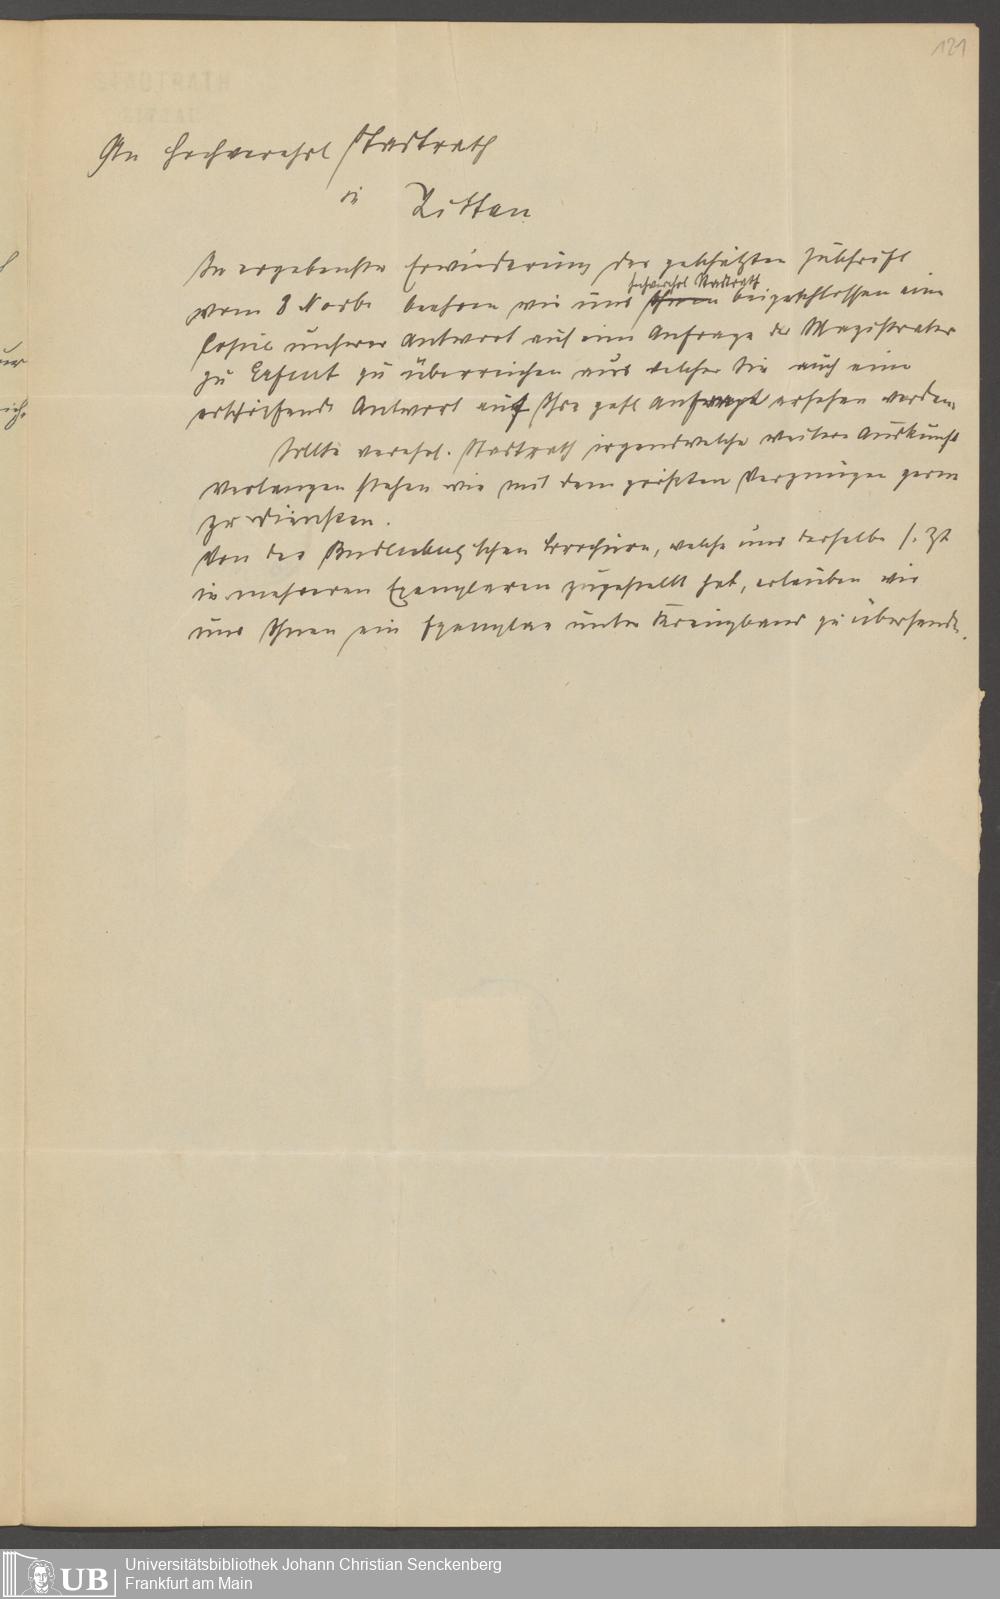 121
An hochverehrl Stadtrath
in Zittau
In ergebenster Erwiederung der geschätzten Zuschrift
hochverehrl Stadtrath
vom 8 Novbr beehren wir uns Ihnen beigeschlossen eine
Copie unserer Antwort auf eine Anfrage des Magistrates
zu Erfurt zu überreichen aus welcher Sie auch eine
erschöpfende Antwort auf Ihre gefl Anfrage ersehen werden
Sollte verehrl. Stadtrath irgendwelche weitere Auskunft
verlangen stehen wir mit dem größten Vergnügen gerne
zu Diensten.
Von der schen Brochüre, welche uns derselbe s. Zt
in mehreren Exemplaren zugestellt hat, erlauben wir
uns Ihnen ein Exemplar unter Kreuzband zu übersenden.
UB
Universitätsbibliothek Johann Christian Senckenberg
Frankfurt am Main